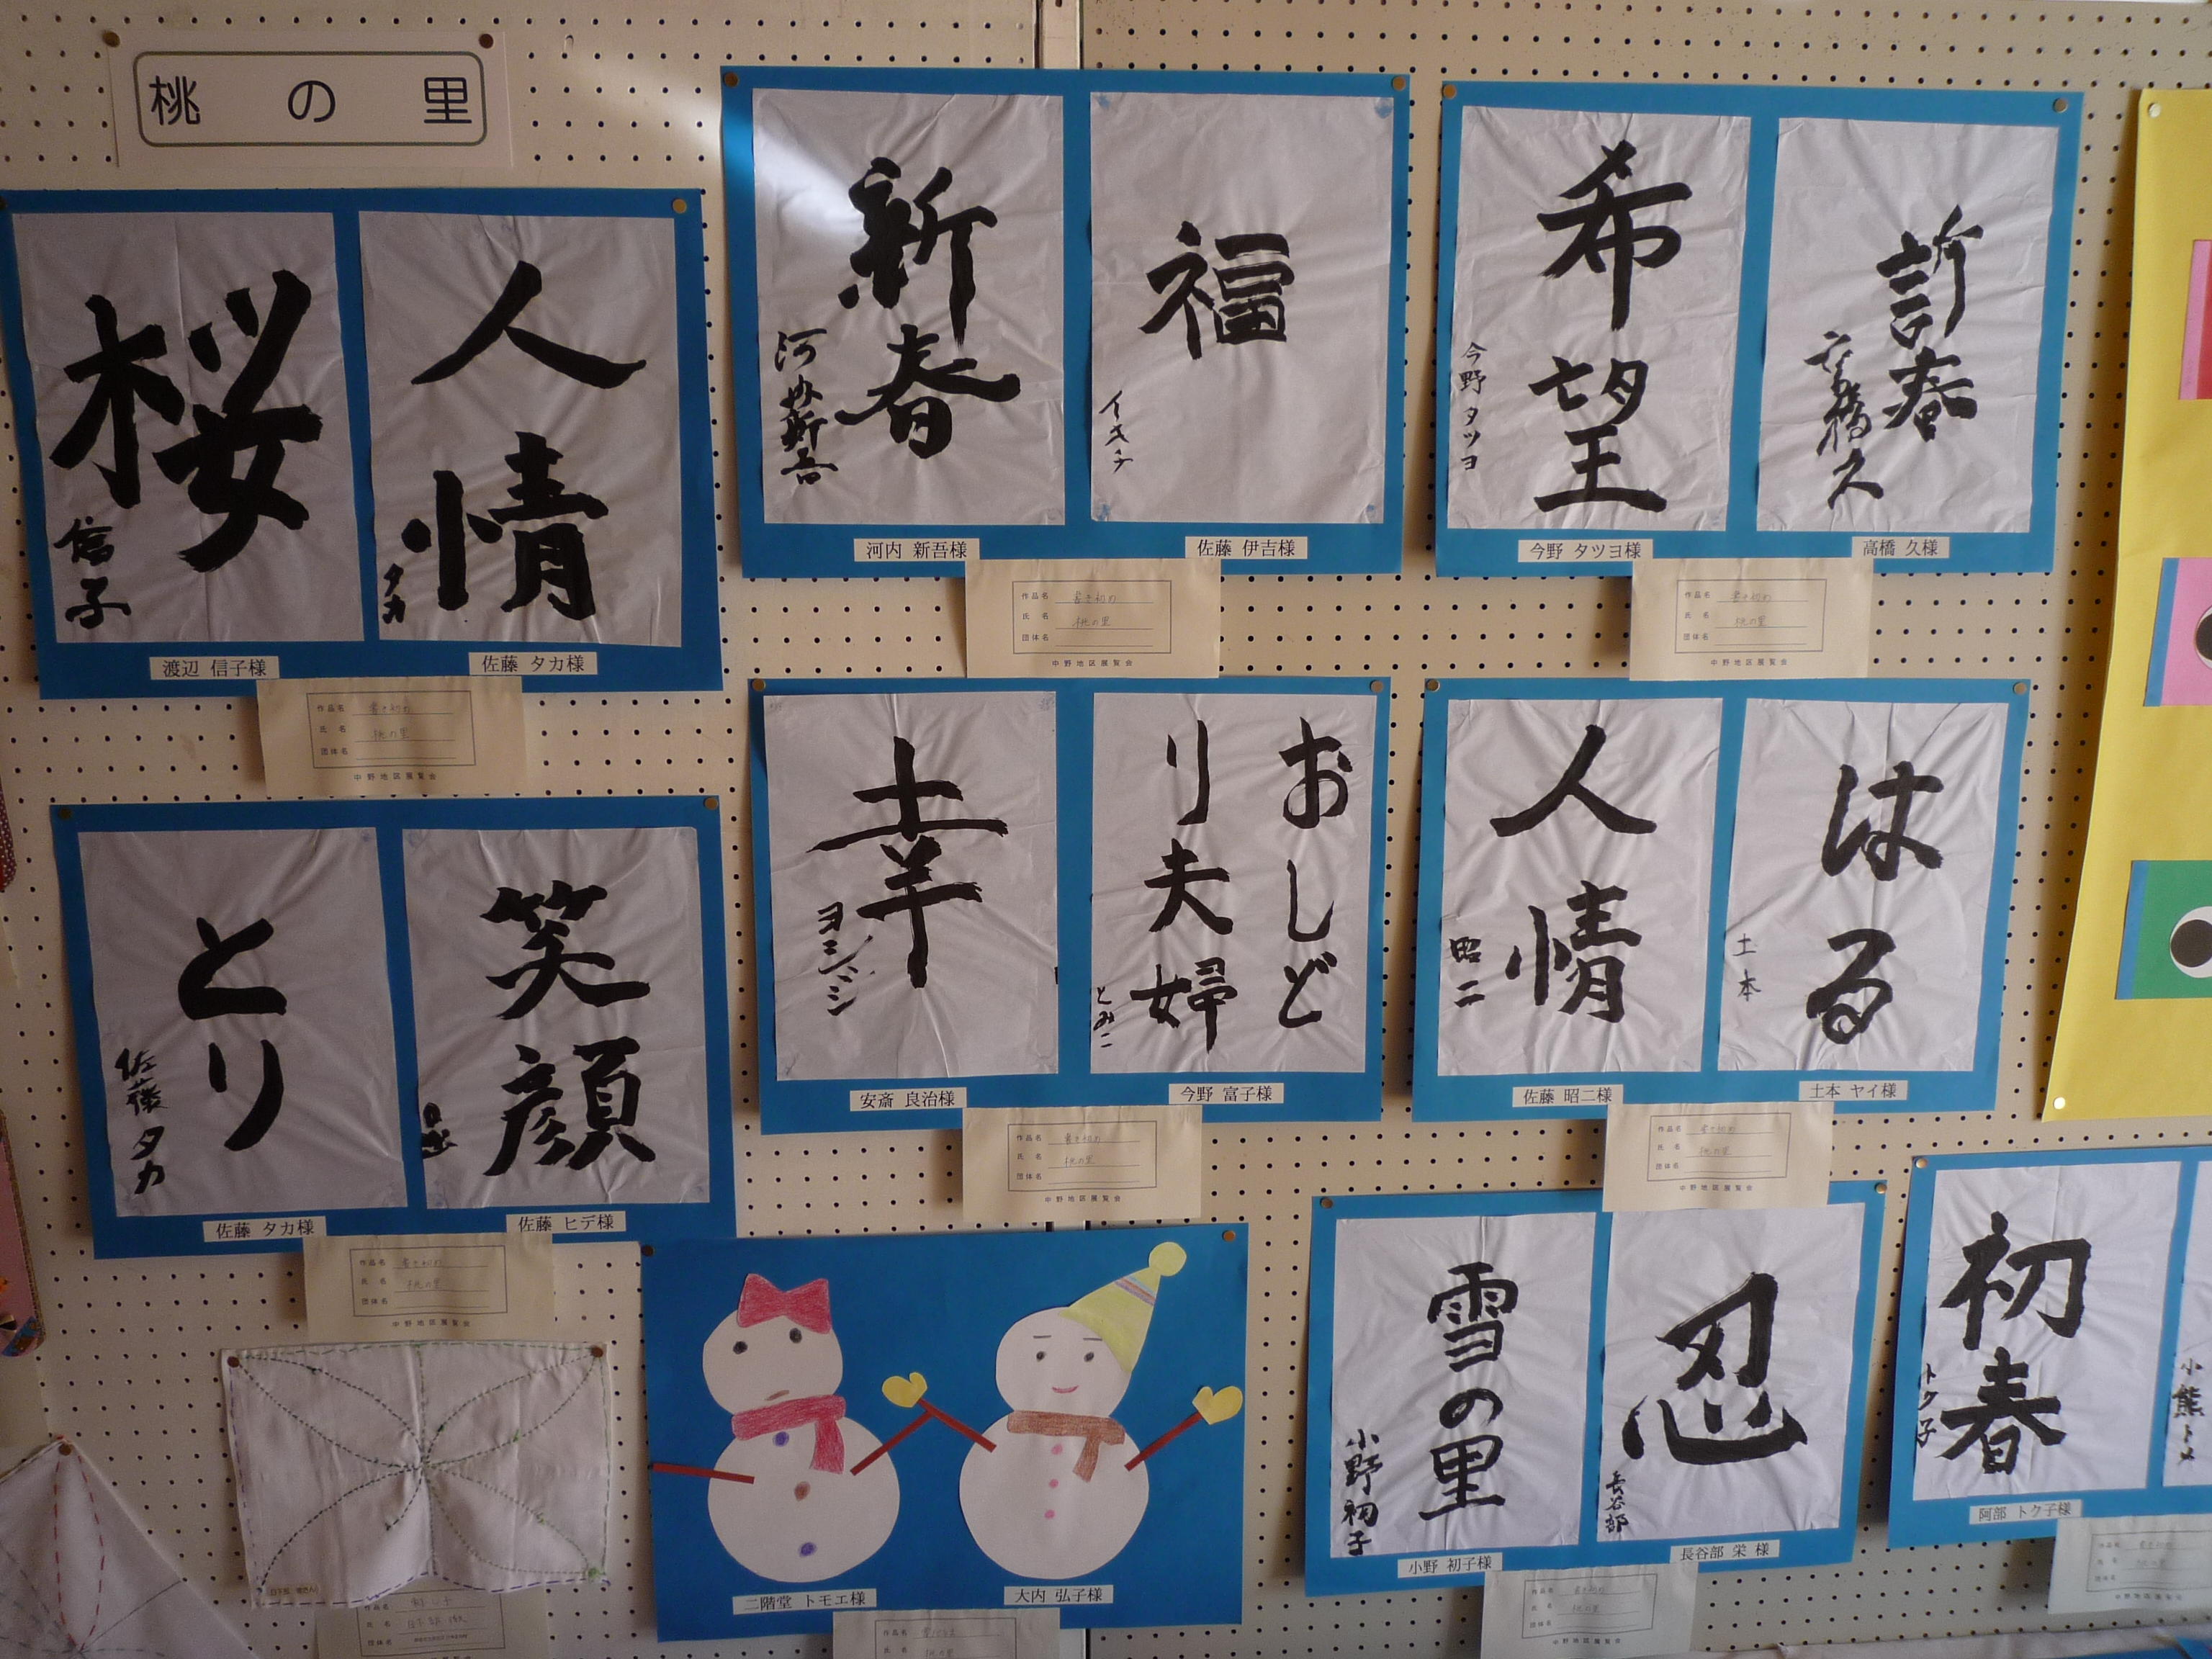 桃の里
桜
信子
渡辺 信子様
人情
タカ
佐藤 タカ様
作品名 書き初め
氏名 桃の里
団体名
中野地区展覧会
新春
河内新吾
河内 新吾様
福
イキチ
佐藤 伊吉様
作品名 書き初め
氏名 桃の里
団体名
中野地区展覧会
希望
今野タツヨ
今野 タツヨ様
春
高橋久
高橋 久様
作品名 書き初め
氏名 桃の里
団体名
中野地区展覧会
とり
佐藤タカ
佐藤 タカ様
笑顔
佐藤 ヒデ様
作品名 書き初め
氏名 桃の里
団体名
中野地区展覧会
幸
安斎 良治様
おしど
り夫婦
とみこ
今野 富子様
作品名 書き初め
氏名 桃の里
団体名
中野地区展覧会
人情
昭二
佐藤 昭二様
はる
土本
土本 ヤイ様
作品名 書き初め
氏名 桃の里
団体名
中野地区展覧会
二階堂 トモエ様
大内 弘子様
作品名
氏名 桃の里
雪の里
小野初子
小野 初子様
忍
長谷部
長谷部 栄 様
作品名 書き初め
氏名 桃の里
団体名
中野地区展覧会
初春
トク子
阿部 トク子様
小熊トメ
作品名 書き初め
氏名 桃の里
団体名
中野地区展覧会
作品名
氏名
団体名